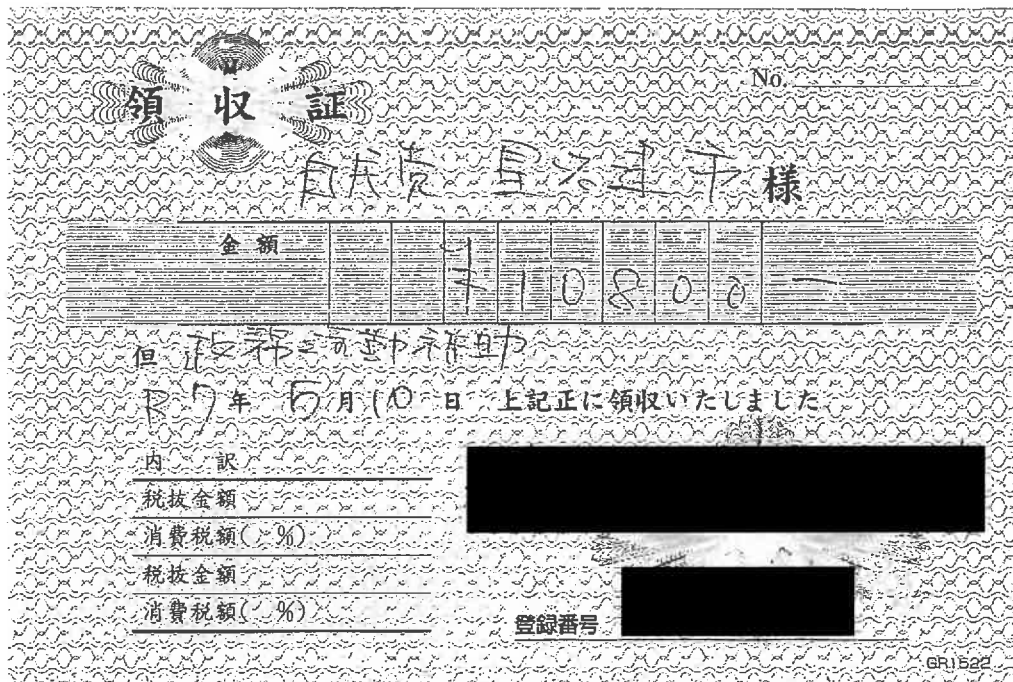 領収証
No.
自民党 星名建市 様
金額 ¥10800-
但 政務活動補助
R7年 5月10日 上記正に領収いたしました
内 訳
税抜金額
消費税額( %)
税抜金額
消費税額( %)
登録番号
GR1522